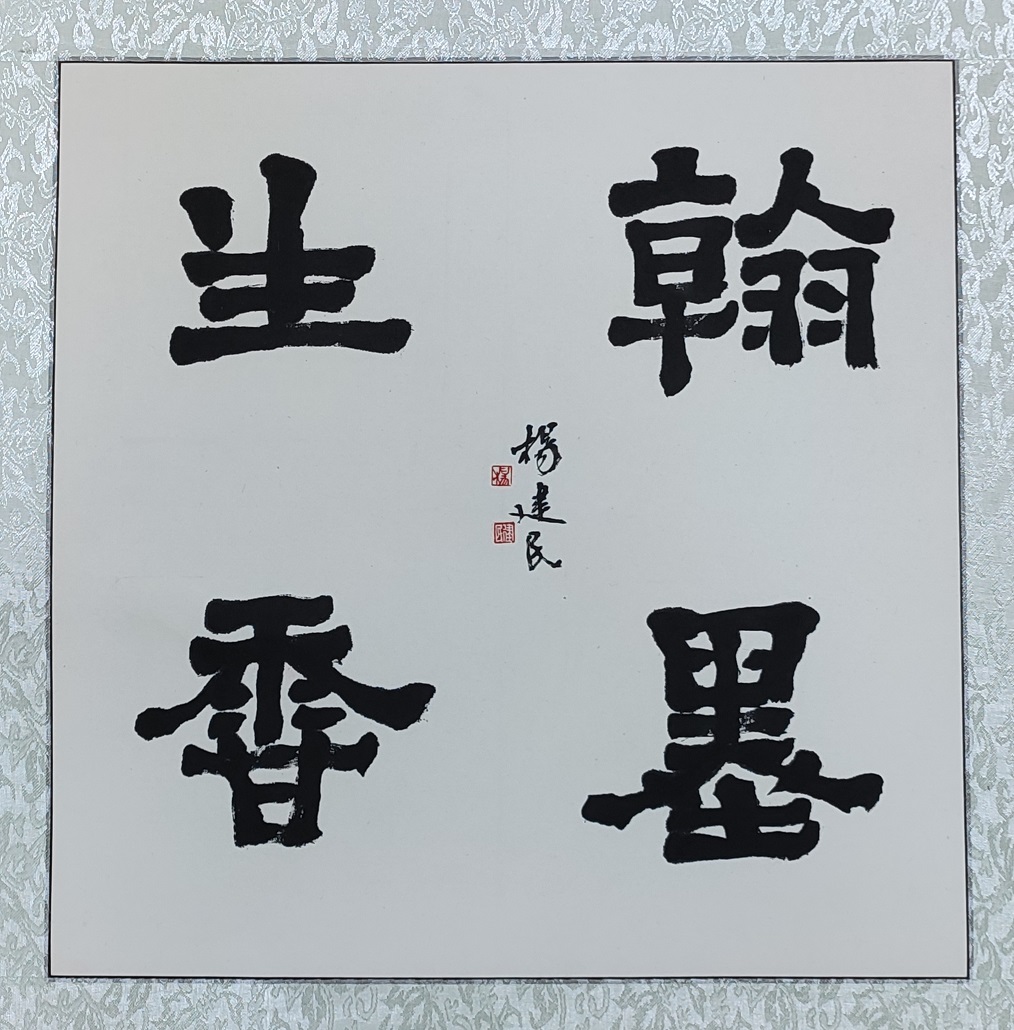 翰墨
生香
楊建民